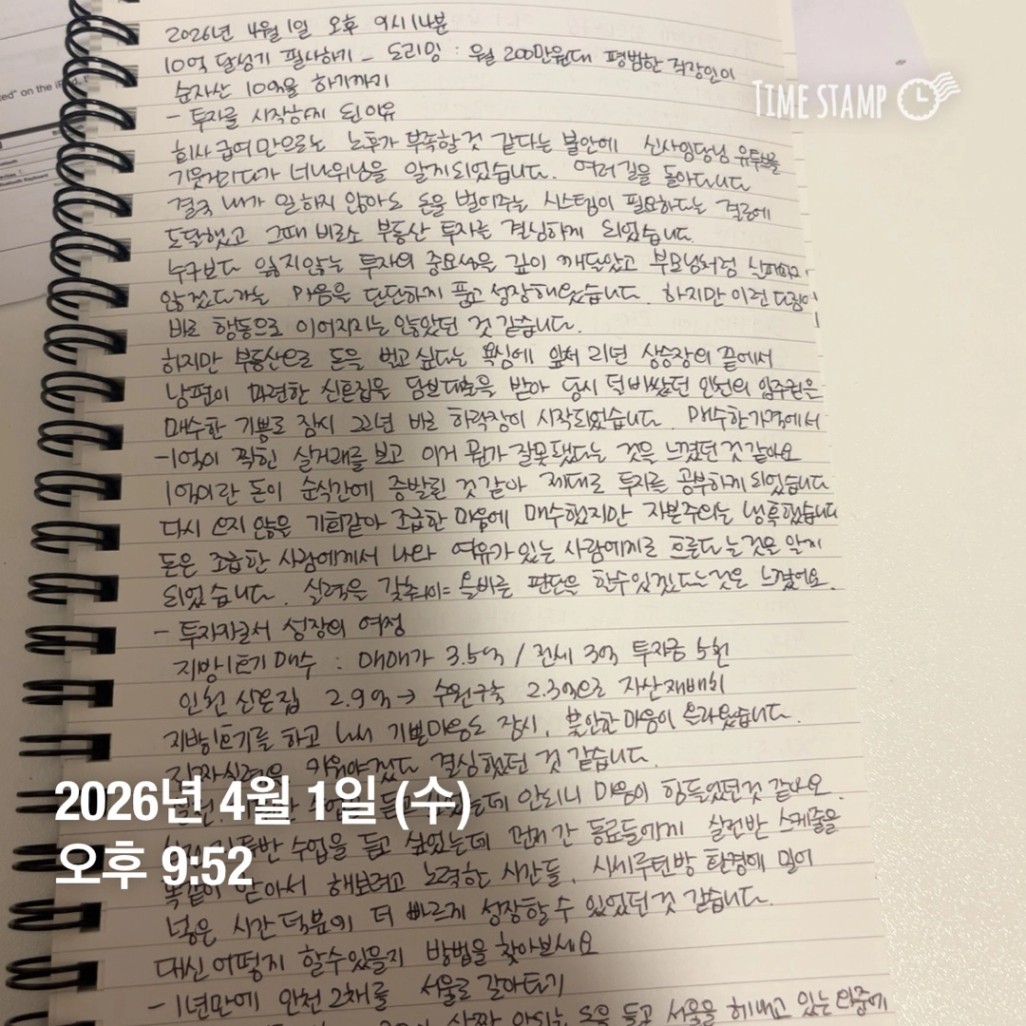 ted" on the iPad, i
TIME STAMP
2026년 4월 1일 오후 9시 14분
10억 달성기 필사하기 - 도리밍 : 월 200만원대 평범한 직장인이
순자산 10억을 하기까지
- 투자를 시작하게 된 이유
회사 급여만으로는 노후가 부족할것 같다는 불안에 신사임당님 유튜브를
기웃거리다가 너나위님을 알게되었습니다. 여러 길을 돌아다니다
결국 내가 일하지 않아도 돈을 벌어주는 시스템이 필요하다는 결론에
도달했고 그때 비로소 부동산 투자를 결심하게 되었습니다.
누구보다 잃지않는 투자의 중요성을 깊이 깨달았고 부모님처럼 실패하지
않겠다라는 마음을 단단하게 품고 성장해왔습니다. 하지만 이런 다짐이
바로 행동으로 이어지지는 않았던 것 같습니다.
하지만 부동산으로 돈을 벌고 싶다는 욕심에 앞서 21년 상승장의 끝에서
남편이 마련한 신혼집을 담보대출을 받아 당시 덜 비쌌던 인천의 입주권을
매수한 기쁨로 잠시 22년 바로 하락장이 시작되었습니다. 매수한가격에서
-1억이 찍힌 실거래를 보고 이거 뭔가 잘못됐다는 것을 느꼈던 것 같아요
1억이란 돈이 순식간에 증발된 것 같아 제대로 투자를 공부하게 되었습니다
다시 오지 않을 기회같아 조급한 마음에 매수했지만 자본주의는 냉혹했습니다
돈은 조급한 사람에게서 나와 여유가 있는 사람에게로 흐른다는것은 알게
되었습니다. 실력을 갖춰야 올바른 판단을 할수있겠다는것은 느꼈어요.
- 투자자로서 성장의 여정
지방1호기 매수 : 매매가 3.5억 / 전세 3억 투자금 5천
인천 신혼집 2.9억 → 수원구축 2.3억으로 자산재배치
지방1호기를 하고 나서 기쁜마음도 잠시, 불안한 마음이 올라왔습니다.
진짜실력을 키워야겠다 결심했던 것 같습니다.
2026년 4월 1일 (수)
듣고 싶었는데 안되니 마음이 힘들었던것 같아요.
수업을 듣고 싶었는데 먼저 간 동료들에게 실전반 스케줄을
오후 9:52
똑같이 받아서 해보려고 노력한 시간들, 시세루틴방 환경에 밀어
넣은 시간 덕분에 더 빠르게 성장할수 있었던것 같습니다.
대신 어떻게 할수있을지 방법을 찾아보세요
- 1년만에 인천 2채를 서울로 갈아타기
안되는 돈을 들고 서울을 헤매고 있는 와중에